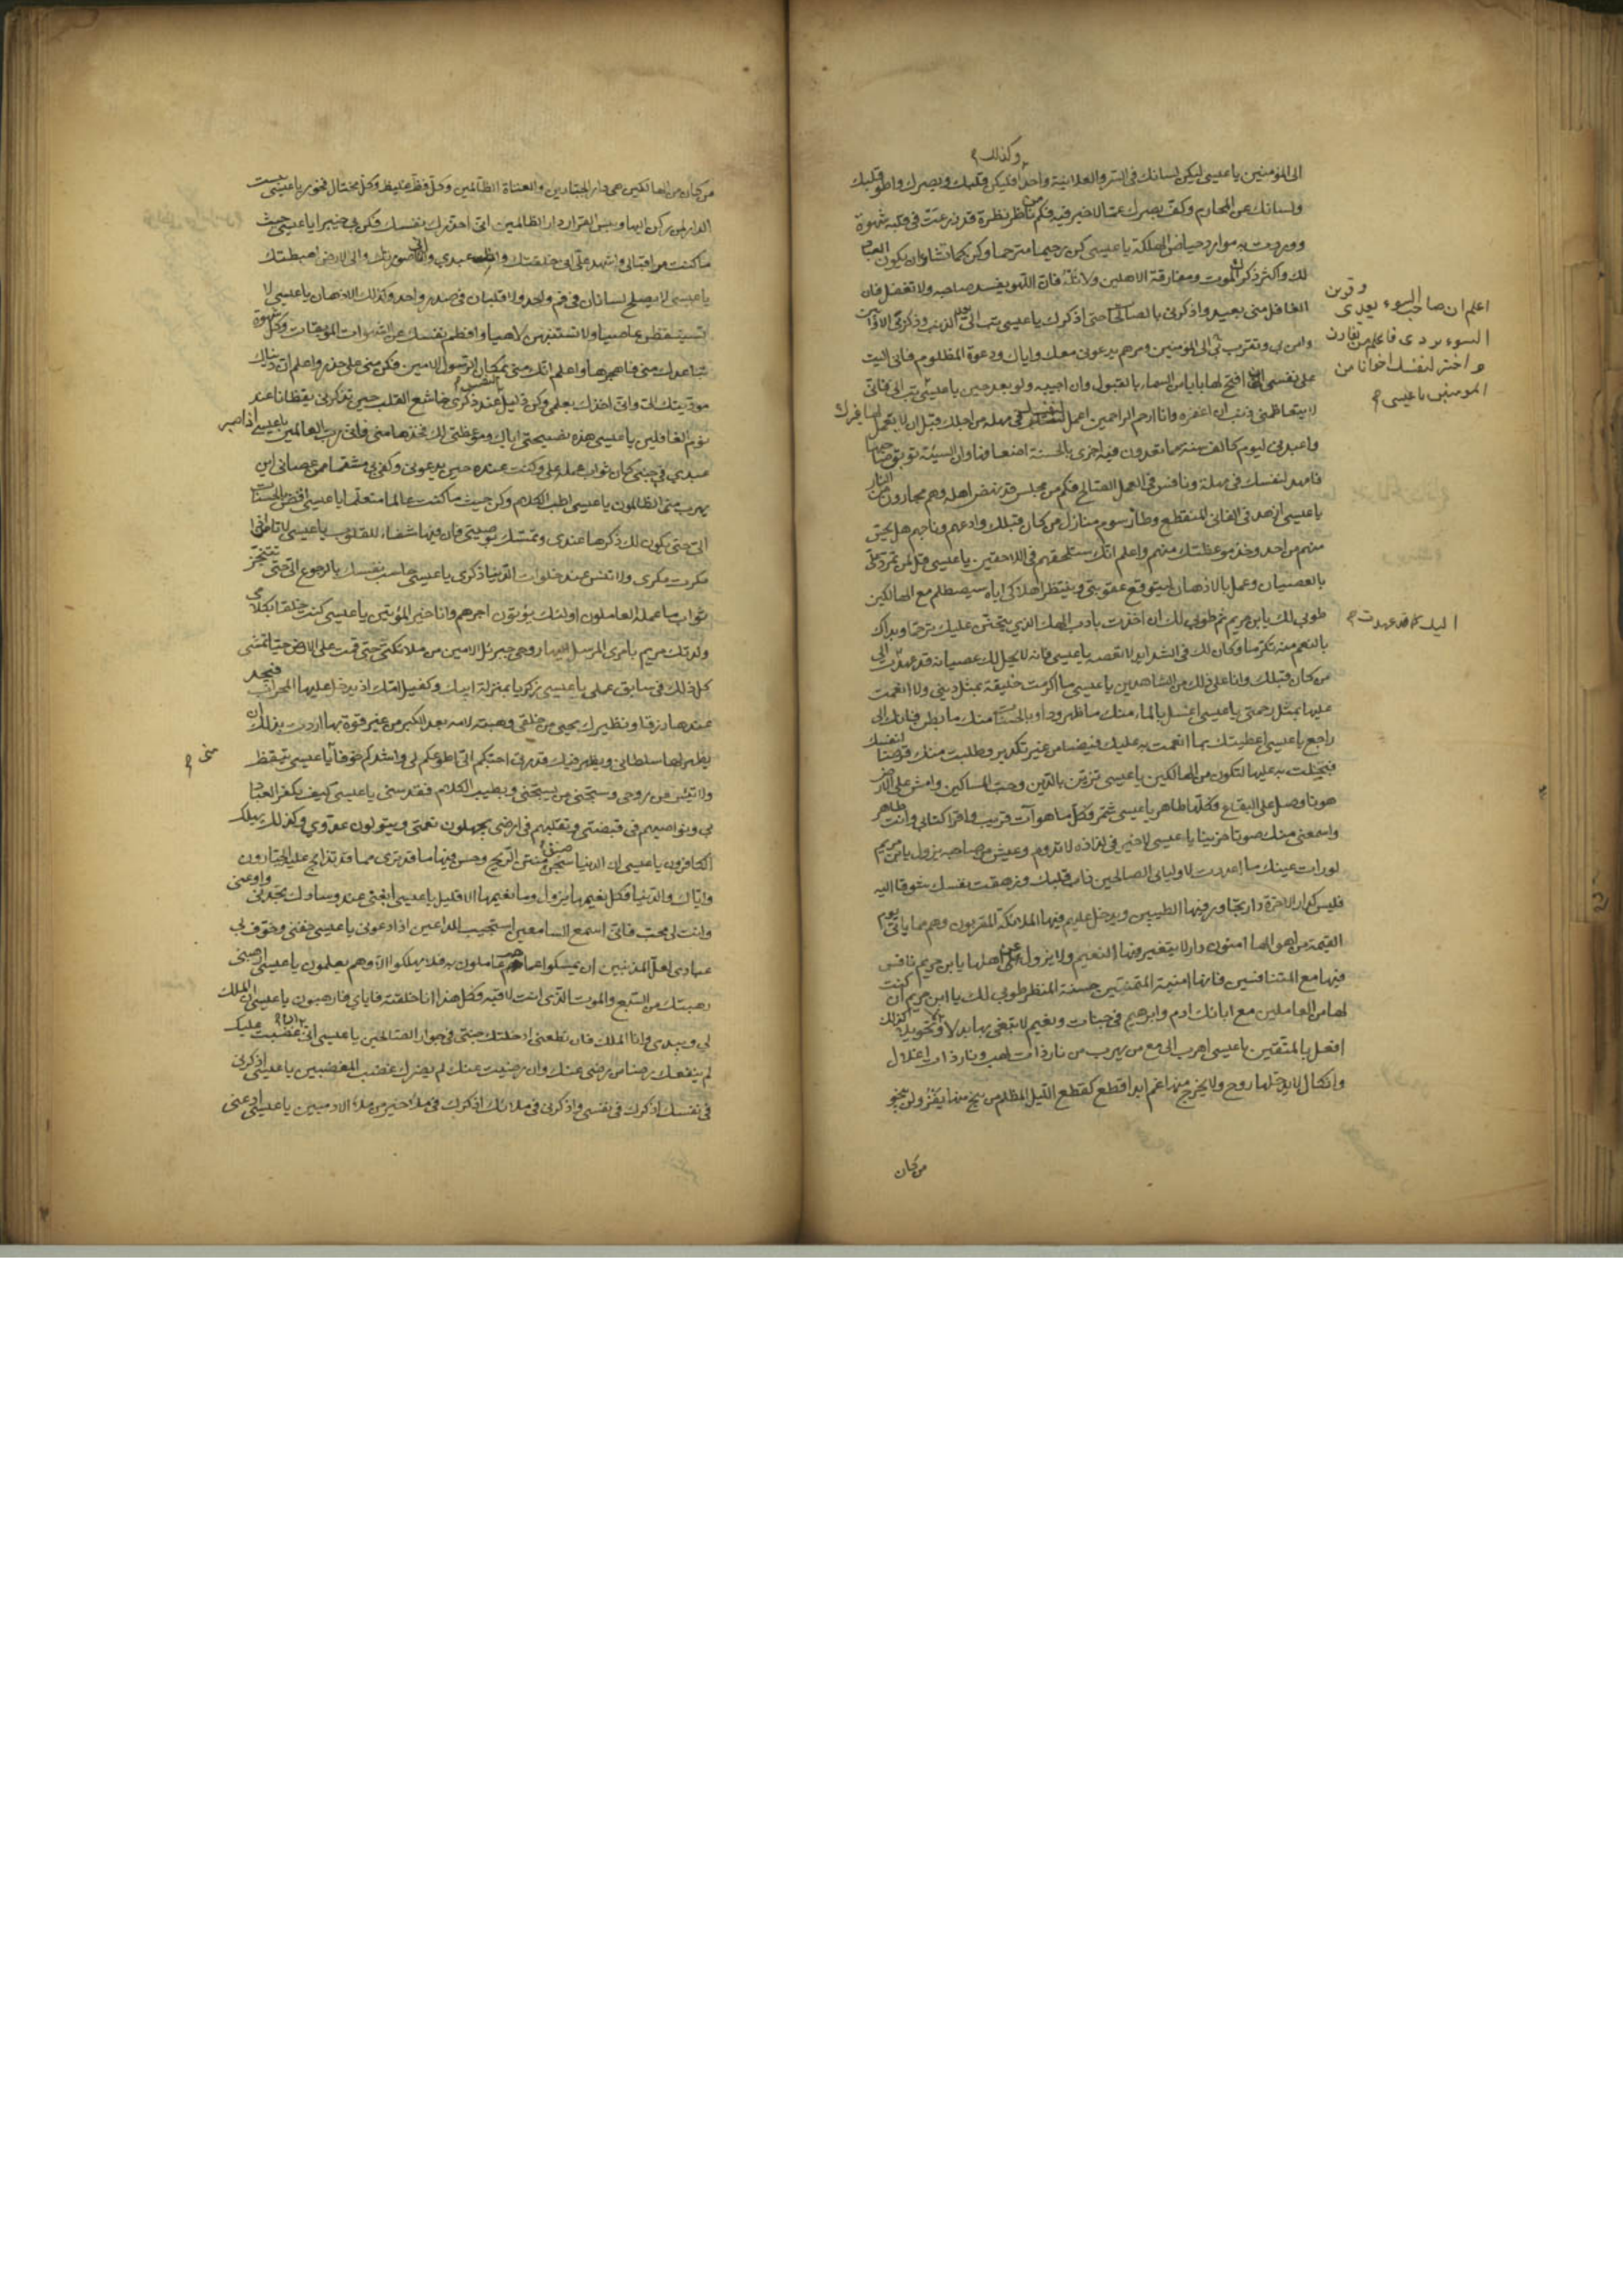 وكذلك
الى المؤمنين يا عيسى ليكن لسانك فى السر والعلانية واحدا وليكن قلبك وبصرك واطو قلبك
ولسانك عن المحارم وكف بصرك عما لا خير فيه فكم من ناظر نظرة قد زرعت فى قلبه شهوة
ووردت به موارد حياض الهلكة يا عيسى كن رحيما مترحما وكن كما تشاء ان يكون العباد
لك واكثر ذكر الموت ومفارقة الاهلين ولا تله فان اللهو يفسد صاحبه ولا تغفل فان
الغافل منى بعيد واذكرنى بالصالحات حتى اذكرك يا عيسى تب الى بعد الذنب وذكر بى الاوابين
وامن بى وتقرب بى الى المؤمنين ومرهم يدعونى معك واياك ودعوة المظلوم فانى اليت
على نفسى ان افتح لها بابا من السماء بالقبول وان اجيبه ولو بعد حين يا عيسى
اعلم ان صاحب السوء يعدى وقرين
السوء يردى فاعلم من تقارن
واختر لنفسك اخوانا من
المومنين يا عيسى
تب الى فانى
لا يتعاظمنى ذنب ان اغفره وانا ارحم الراحمين اعمل لنفسك فى مهلة من اجلك قبل ان لا يعمل لها غيرك
واعبدنى ليوم كالف سنة مما تعدون فيه اجزى بالحسنة اضعافها وان السيئة توبق صاحبها
فامهد لنفسك فى مهلة ونافس فى العمل الصالح فكم من مجلس قد نهض اهله وهم مجارون من النار
يا عيسى ازهد فى الفانى المنقطع وطأ رسوم منازل من كان قبلك وادعهم وناجهم هل يحس
منهم من احد وخذ موعظتك منهم واعلم انك ستلحقهم فى اللاحقين يا عيسى قل لمن تمرد على
بالعصيان وعمل بالادهان ليتوقع عقوبتى وينتظر اهلاكى اياه سيصطلم مع الهالكين
طوبى لك يا بن مريم ثم طوبى لك ان اخذت بادب الهك الذى يتحنن عليك ترحما وبداك
بالنعم منه تكرما وكان لك فى الشدايد لا تعصه يا عيسى فانه لا يحل لك عصيانه قد عهدت الى
اليك كما قد عهدت
من كان قبلك وانا على ذلك من الشاهدين يا عيسى ما اكرمت خليقة بمثل دينى ولا انعمت
عليها بمثل رحمتى يا عيسى اغسل بالماء منك ما ظهر وداو بالحسنات منك ما بطن فانك الى
راجع يا عيسى اعطيتك بما انعمت به عليك فيضا من غير تكدير وطلبت منك قرضا لنفسك
فبخلت به عليها لتكون من الهالكين يا عيسى تزين بالدين وحب المساكين وامش على الارض
هونا وصل على البقاع فكلها طاهر يا عيسى شمر فكل ما هو آت قريب واقرا كتابى وانت طاهر
واسمعنى منك صوتا حزينا يا عيسى لا خير فى لذاذة لا تدوم وعيش من صاحبه يزول يا بن مريم
لو رات عينك ما اعددت لاوليائى الصالحين ذاب قلبك وزهقت نفسك شوقا اليه
فليس كدار الاخرة دار تجاور فيها الطيبين ويدخل عليهم فيها الملائكة المقربون وهم مما ياتى يوم
القيمة من اهوالها امنون دار لا يتغير فيها النعيم ولا يزول عن اهلها يا بن مريم نافس
فيها مع المتنافسين فانها امنية المتمنين حسنة المنظر طوبى لك يا ابن مريم ان كنت
لها من العاملين مع ابائك ادم وابرهيم فى جنات ونعيم لا تبغى بها بدلا ولا تحويلا كذلك
افعل بالمتقين يا عيسى اهرب الى مع من يهرب من نار ذات لهب ونار ذات اغلال
وانكال لا يدخلها روح ولا يخرج منها غم ابدا قطع كقطع الليل المظلم من ينج منها يفز ولن ينجو
من كان
من كان من الهالكين هى دار الجبارين والعتاة الظالمين وكل فظ غليظ وكل مختال فخور يا عيسى بئست
الدار لمن ركن اليها وبئس القرار دار الظالمين انى احذرك نفسك فكن بى خبيرا يا عيسى كن حيث
ما كنت مراقبا لى واشهد على انى خلقتك وانك عبدى وانى صورتك والى الارض اهبطتك
يا عيسى لا يصلح لسانان فى فم واحد ولا قلبان فى صدر واحد وكذلك الاذهان يا عيسى لا
تستيقظن عاصيا ولا تستنبهن لاهيا وافطم نفسك عن الشهوات الموبقات وكل شهوة
تباعدك منى فاهجرها واعلم انك منى بمكان الرسول الامين فكن منى على حذر واعلم ان دنياك
مؤديتك الى وانى اخذك بعلمى وكن ذليل النفس عند ذكرى خاشع القلب حين تذكرنى يقظانا عند
نوم الغافلين يا عيسى هذه نصيحتى اياك وموعظتى لك فخذها منى وانى رب العالمين يا عيسى اذا صبر
عبدى فى جنبى كان ثواب عمله على وكنت عنده حين يدعونى وكفى بى منتقما ممن عصانى اين
يهرب منى الظالمون يا عيسى اطب الكلام وكن حيث ما كنت عالما متعلما يا عيسى افض بالحسنات
الى حتى يكون لك ذكرها عندى وتمسك بوصيتى فان فيها شفاء للقلوب يا عيسى لا تامن اذا
مكرت مكرى ولا تنس عند خلوات الدنيا ذكرى يا عيسى حاسب نفسك بالرجوع الى حتى تتنجز
ثواب ما عمله العاملون اولئك يؤتون اجرهم وانا خير المؤتين يا عيسى كنت خلقا بكلامى
ولدتك مريم بامرى المرسل اليها روحى جبرئل الامين من ملائكتى حتى قمت على الارض حيا تمشى
كل ذلك فى سابق علمى يا عيسى زكريا بمنزلة ابيك وكفيل امك اذ يدخل عليها المحراب فيجد
عندها رزقا ونظيرك يحيى من خلقى وهبته لامه بعد الكبر من غير قوة بها اردت بذلك ان
يظهر لها سلطانى ويظهر فيك قدرتى احبكم الى اطوعكم لى واشدكم خوفا منى يا عيسى تيقظ
ولا تيئس من روحى وسبحنى مع من يسبحنى وبطيب الكلام فقدسنى يا عيسى كيف يكفر العباد
بى ونواصيهم فى قبضتى وتقلبهم فى ارضى يجهلون نعمتى ويتولون عدوى وكذلك يهلك
الكافرون يا عيسى ان الدنيا سجن ضيق منتن الريح وحسن فيها ما قد ترى مما قد تذابح عليه الجبارون
واياك والدنيا فكل نعيمها يزول وما نعيمها الا قليل يا عيسى ابغنى عند وسادك تجدنى وادعنى
وانت لى محب فانى اسمع السامعين استجيب للداعين اذا دعونى يا عيسى خفنى وخوف بى
عبادى لعل المذنبين ان يمسكوا عما هم عاملون به فلا يهلكوا الا وهم يعلمون يا عيسى ارهبنى
رهبتك من السبع والموت الذى انت لاقيه فكل هذا انا خلقته فاياى فارهبون يا عيسى ان الملك
لى وبيدى وانا الملك فان تطعنى ادخلتك جنتى فى جوار الصالحين يا عيسى انى ان غضبت عليك
لم ينفعك رضا من رضى عنك وان رضيت عنك لم يضرك غضب المغضبين يا عيسى اذكرنى
فى نفسك اذكرك فى نفسى واذكرنى فى ملائك اذكرك فى ملا خير من ملا الادميين يا عيسى ادعنى